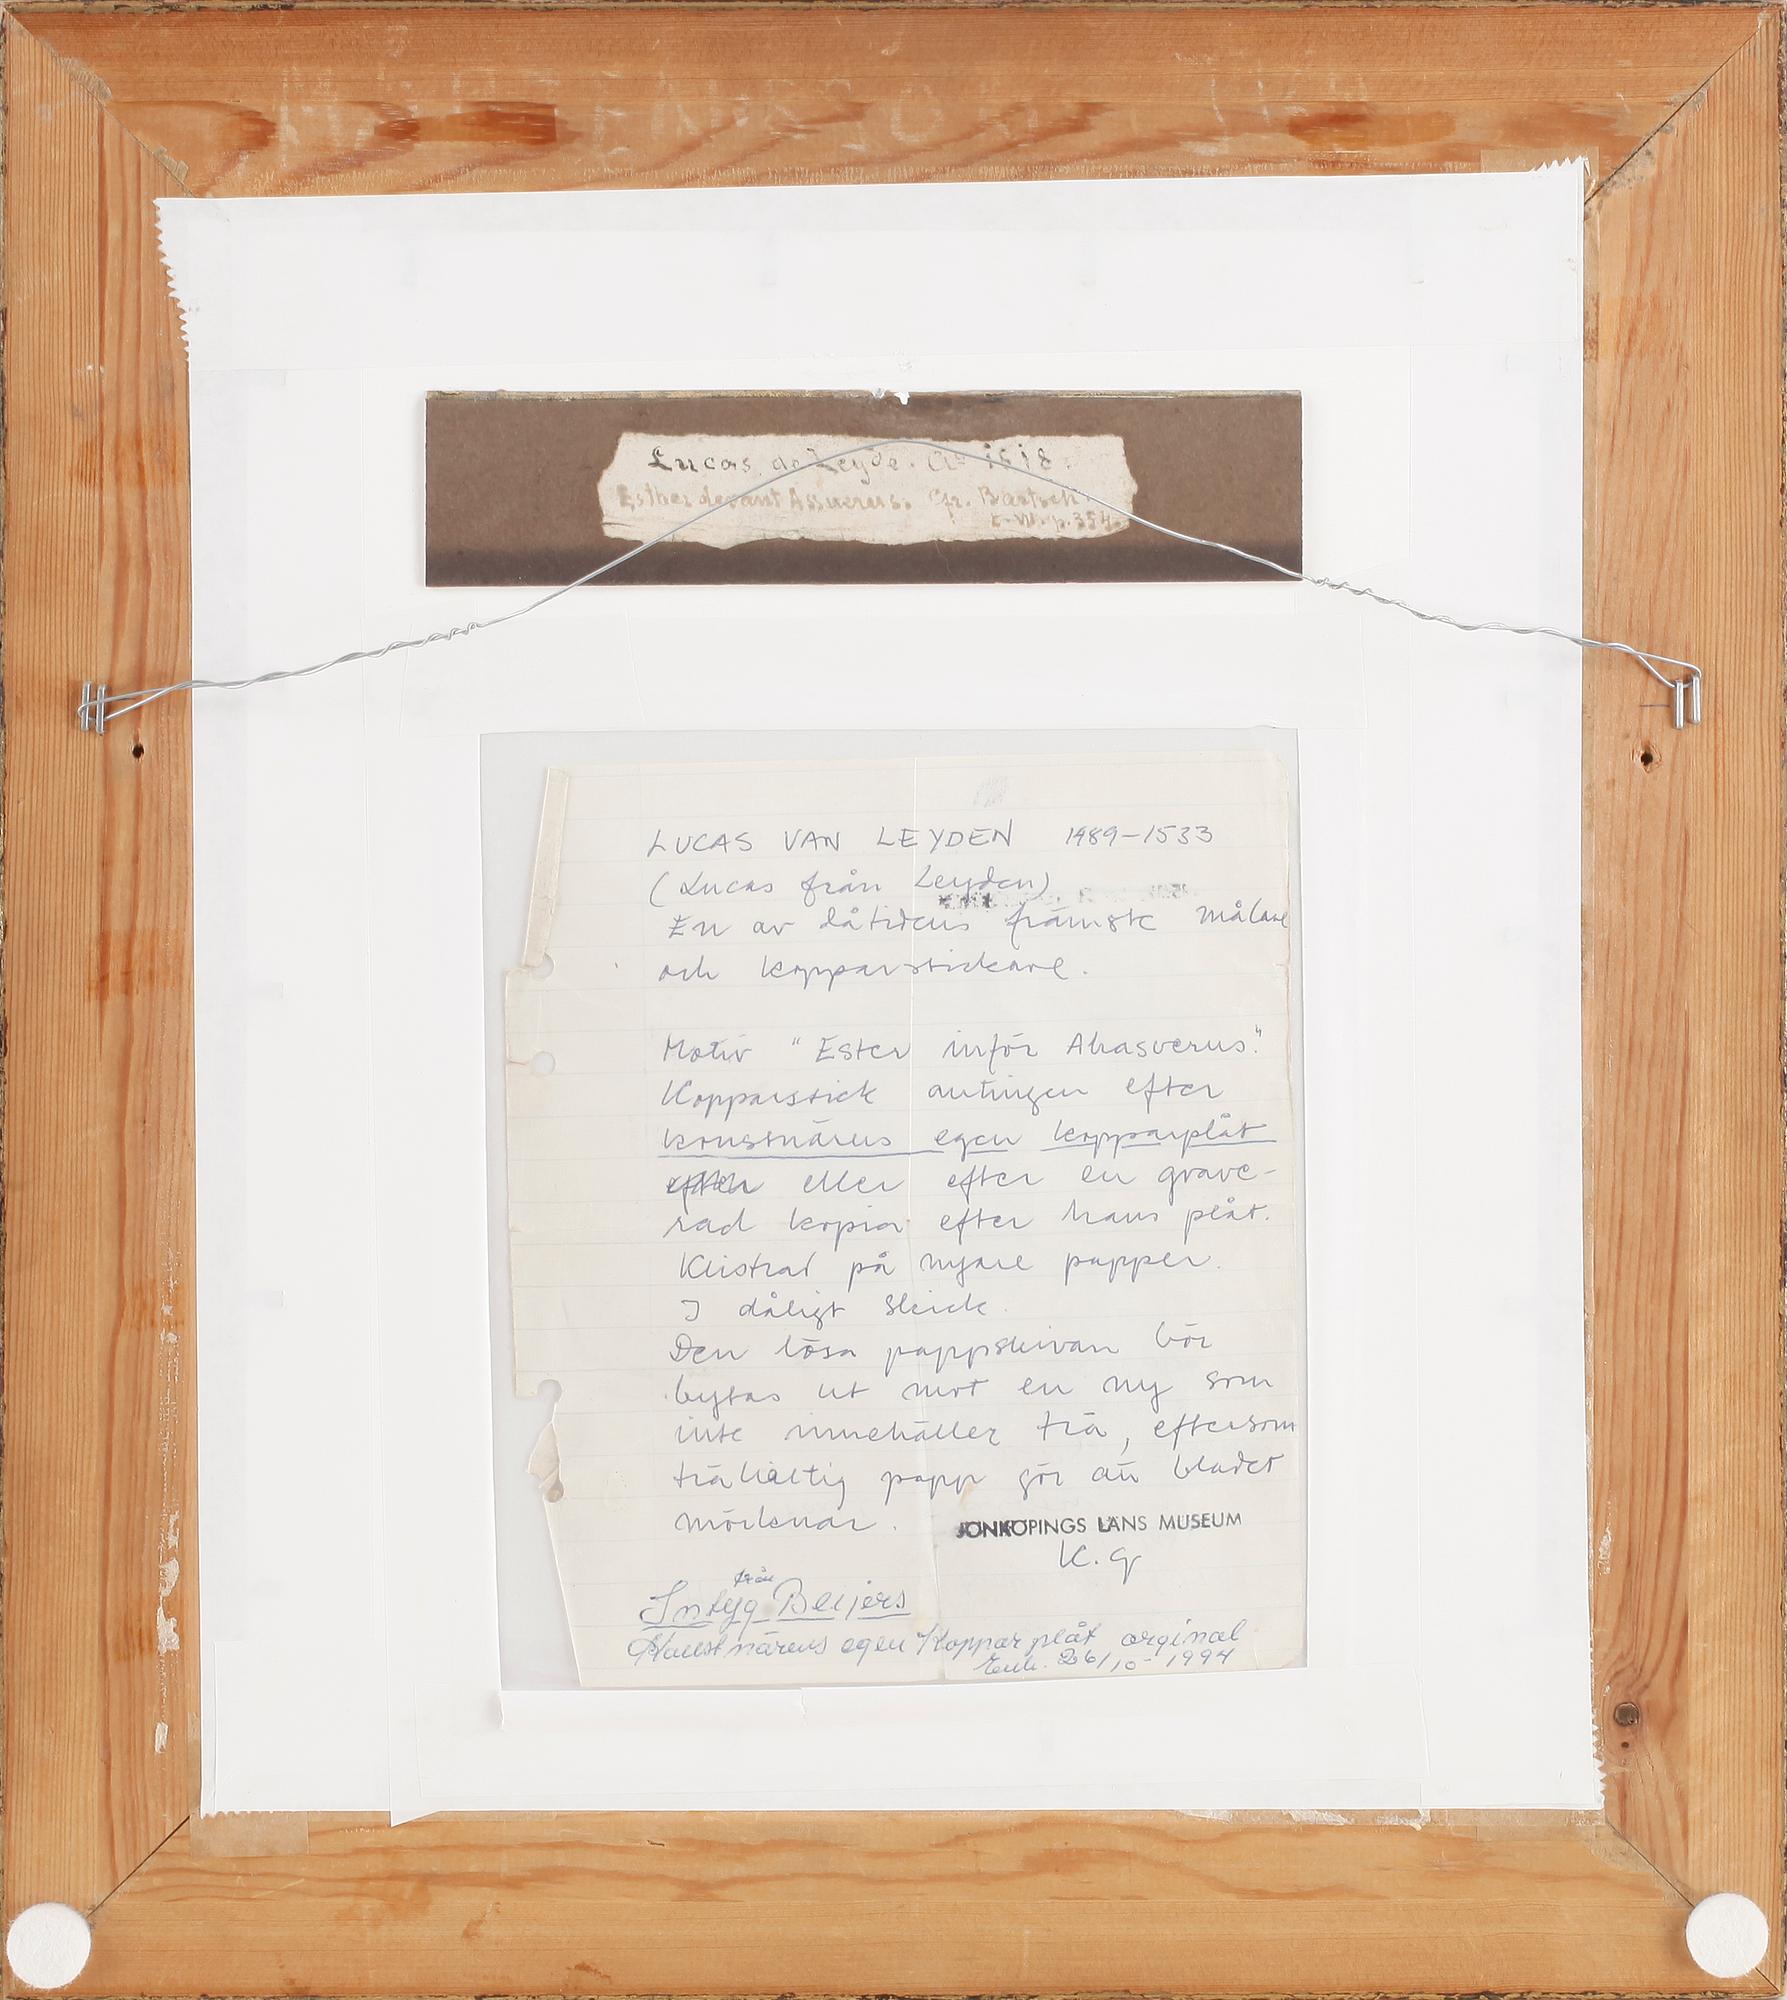 Lucas de Leyde. Aº 1518.
Esther devant Assuerus. Cfr. Bartsch
p. 354.
LUCAS VAN LEYDEN 1489-1533
(Lucas från Leyden)
En av dåtidens främste målare
och kopparstickare.
Motiv "Ester inför Ahasverus."
Kopparstick antingen efter
konstnärens egen kopparplåt
eller efter en grave-
rad kopia efter hans plåt.
Klistrat på nyare papper.
I dåligt skick.
Den lösa pappskivan bör
bytas ut mot en ny som
inte innehåller trä, eftersom
trähaltig papp gör att bladet
mörknar.
JÖNKÖPINGS LÄNS MUSEUM
K. G
Intyg från Beijers
Konstnärens egen Kopparplåt orginal
Enl. 26/10-1994